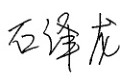 石泽龙